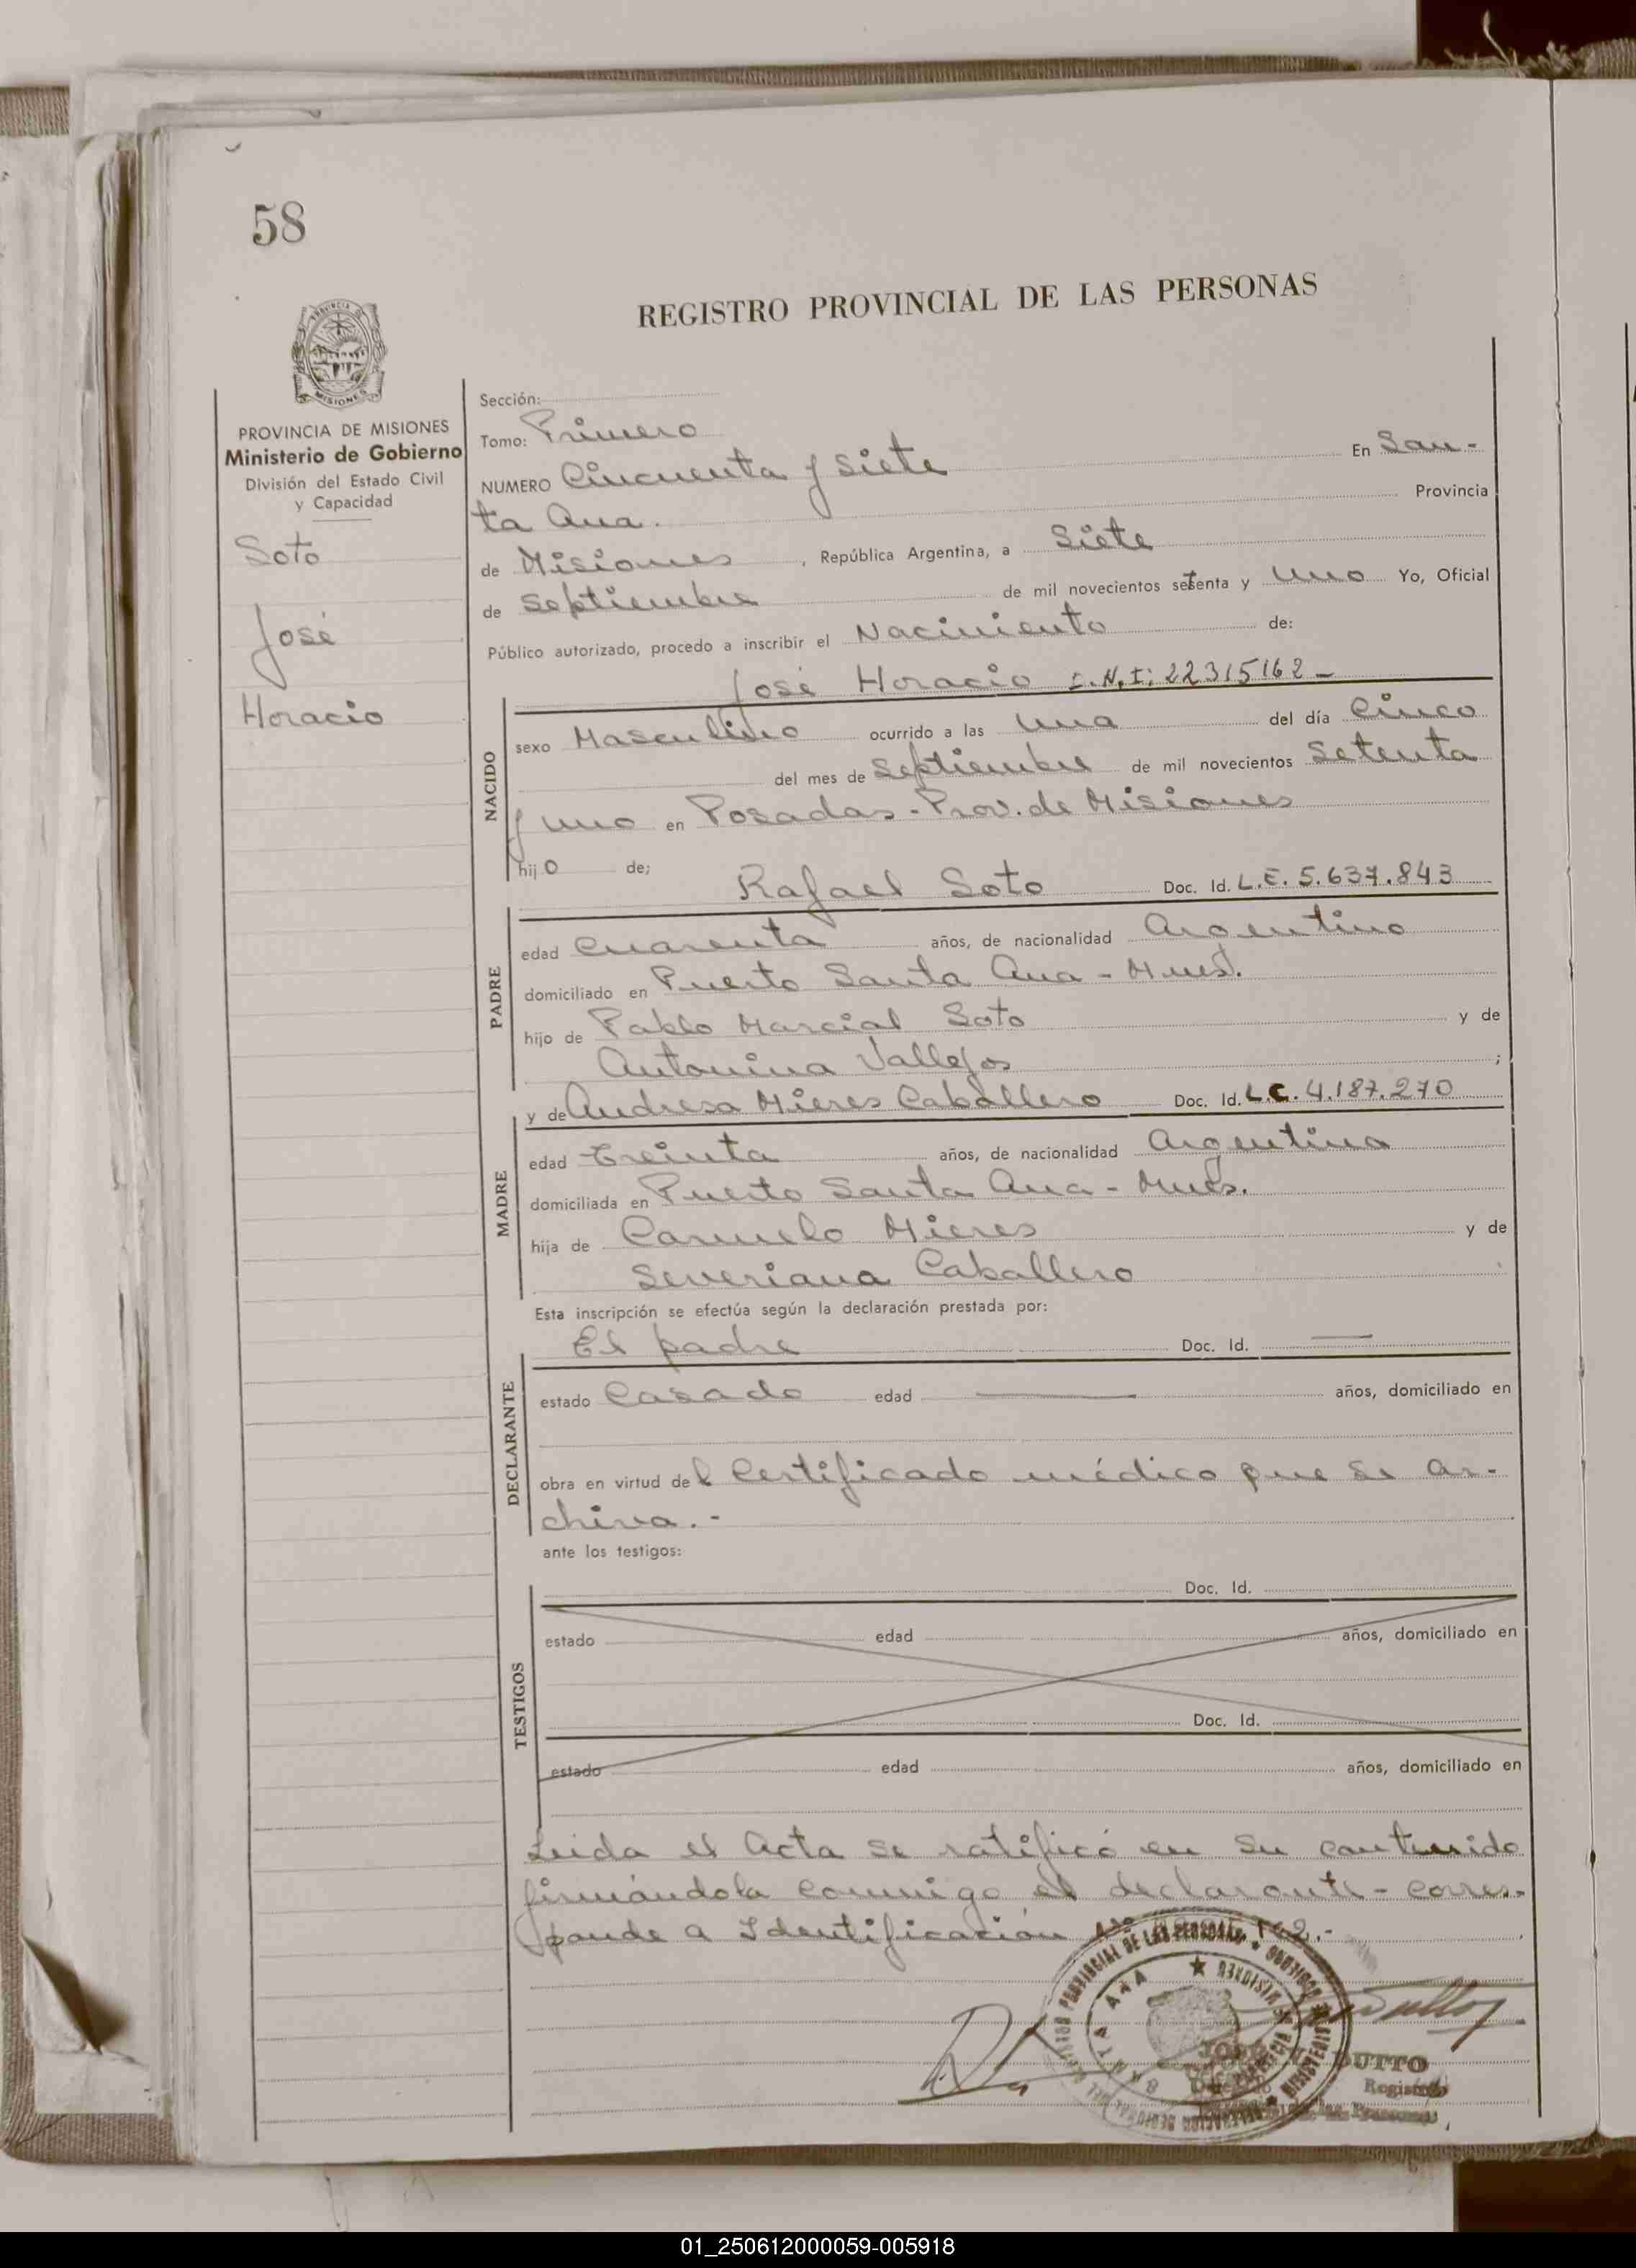 58
REGISTRO PROVINCIAL DE LAS PERSONAS
MISIONES
PROVINCIA DE MISIONES
Ministerio de Gobierno
División del Estado Civil
y Capacidad
Soto
José
Horacio
Sección:
Tomo: Primero
NUMERO Cincuenta y siete En San-
ta Ana. Provincia
de Misiones, República Argentina, a Siete
de Septiembre de mil novecientos setenta y uno Yo, Oficial
Público autorizado, procedo a inscribir el Nacimiento de:
José Horacio I.N.I: 22315162-
NACIDO
sexo Masculino ocurrido a las una del día Cinco
del mes de Septiembre de mil novecientos Setenta
y uno en Posadas-Prov. de Misiones
hijo de; Rafael Soto Doc. Id. L.E. 5.637.843
PADRE
edad Cuarenta años, de nacionalidad Argentino
domiciliado en Puerto Santa Ana-Mnes.
hijo de Pablo Marcial Soto y de
Antonina Vallejos ;
y de Andresa Mieres Caballero Doc. Id. L.C. 4.187.270
MADRE
edad Treinta años, de nacionalidad Argentina
domiciliada en Puerto Santa Ana-Mnes.
hija de Carmelo Mieres y de
Severiana Caballero
Esta inscripción se efectúa según la declaración prestada por:
El padre Doc. Id. —
DECLARANTE
estado Casado edad — años, domiciliado en
obra en virtud del Certificado médico que se ar-
chiva.-
ante los testigos:
TESTIGOS
Doc. Id.
estado edad años, domiciliado en
Doc. Id.
estado edad años, domiciliado en
Leida el Acta se ratificó en su contenido
firmándola conmigo el declarante-corres-
ponde a Identificación
DUTTO
01_250612000059-005918